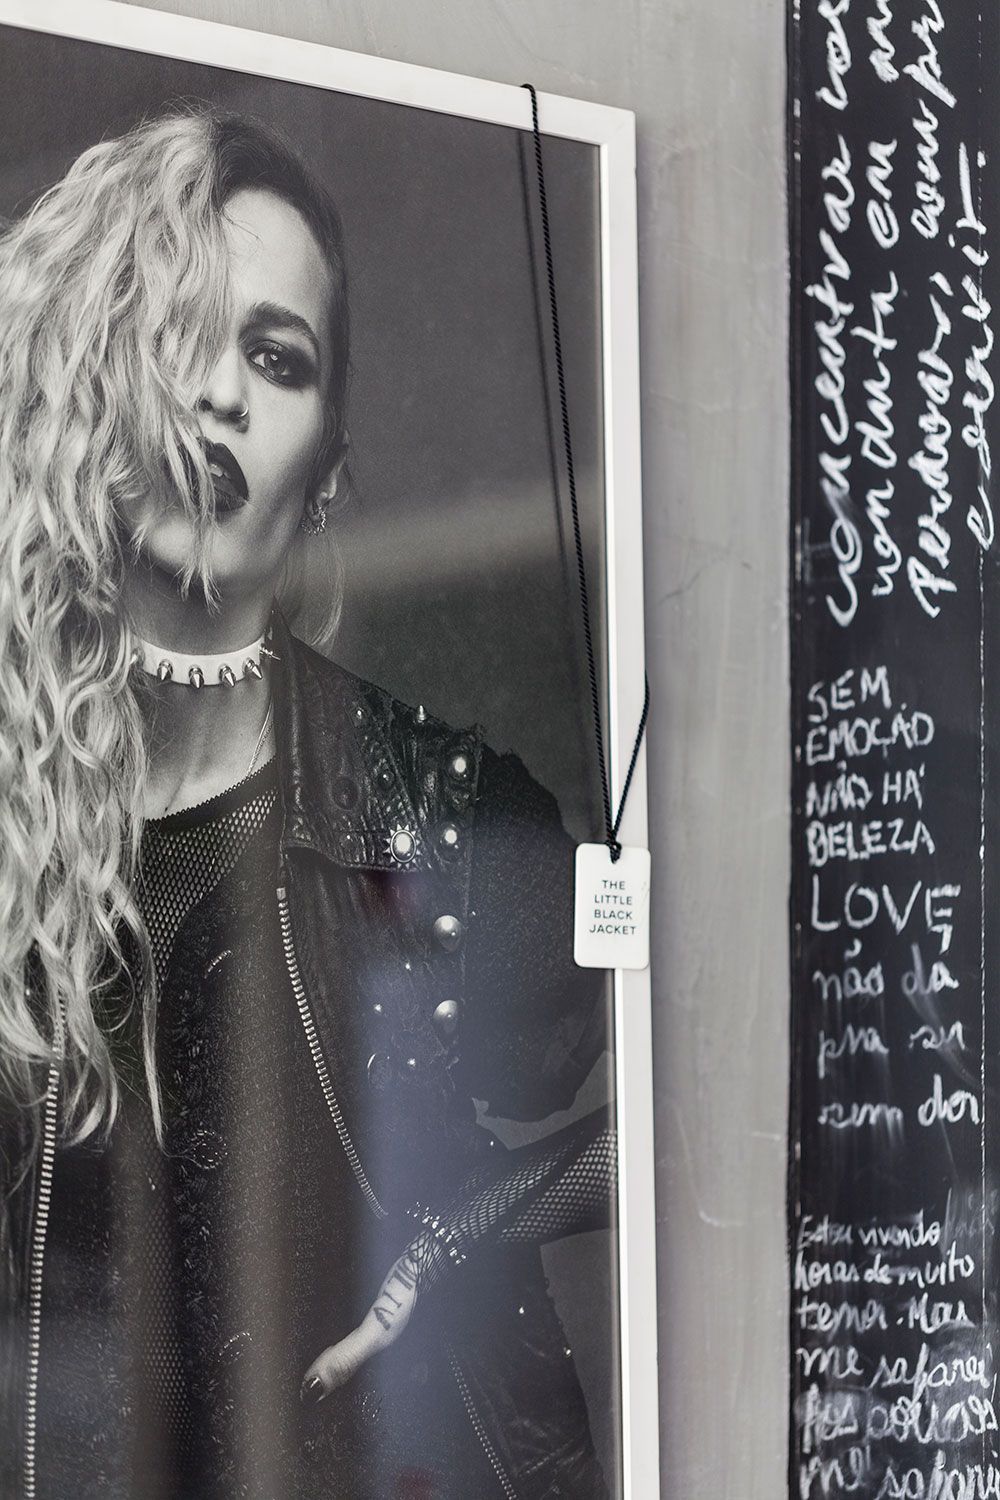 THE
LITTLE
BLACK
JACKET
concentrar
conduta em
Perdoar,
e servir.
SEM
EMOÇÃO
NÃO HÁ
BELEZA
LOVE
não dá
pra ser
sem dor
Estou vivendo
horas de muito
temor. Mas
me safarei
me